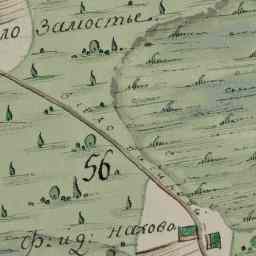 ло Замостье.
56
Ф: ид: нахово